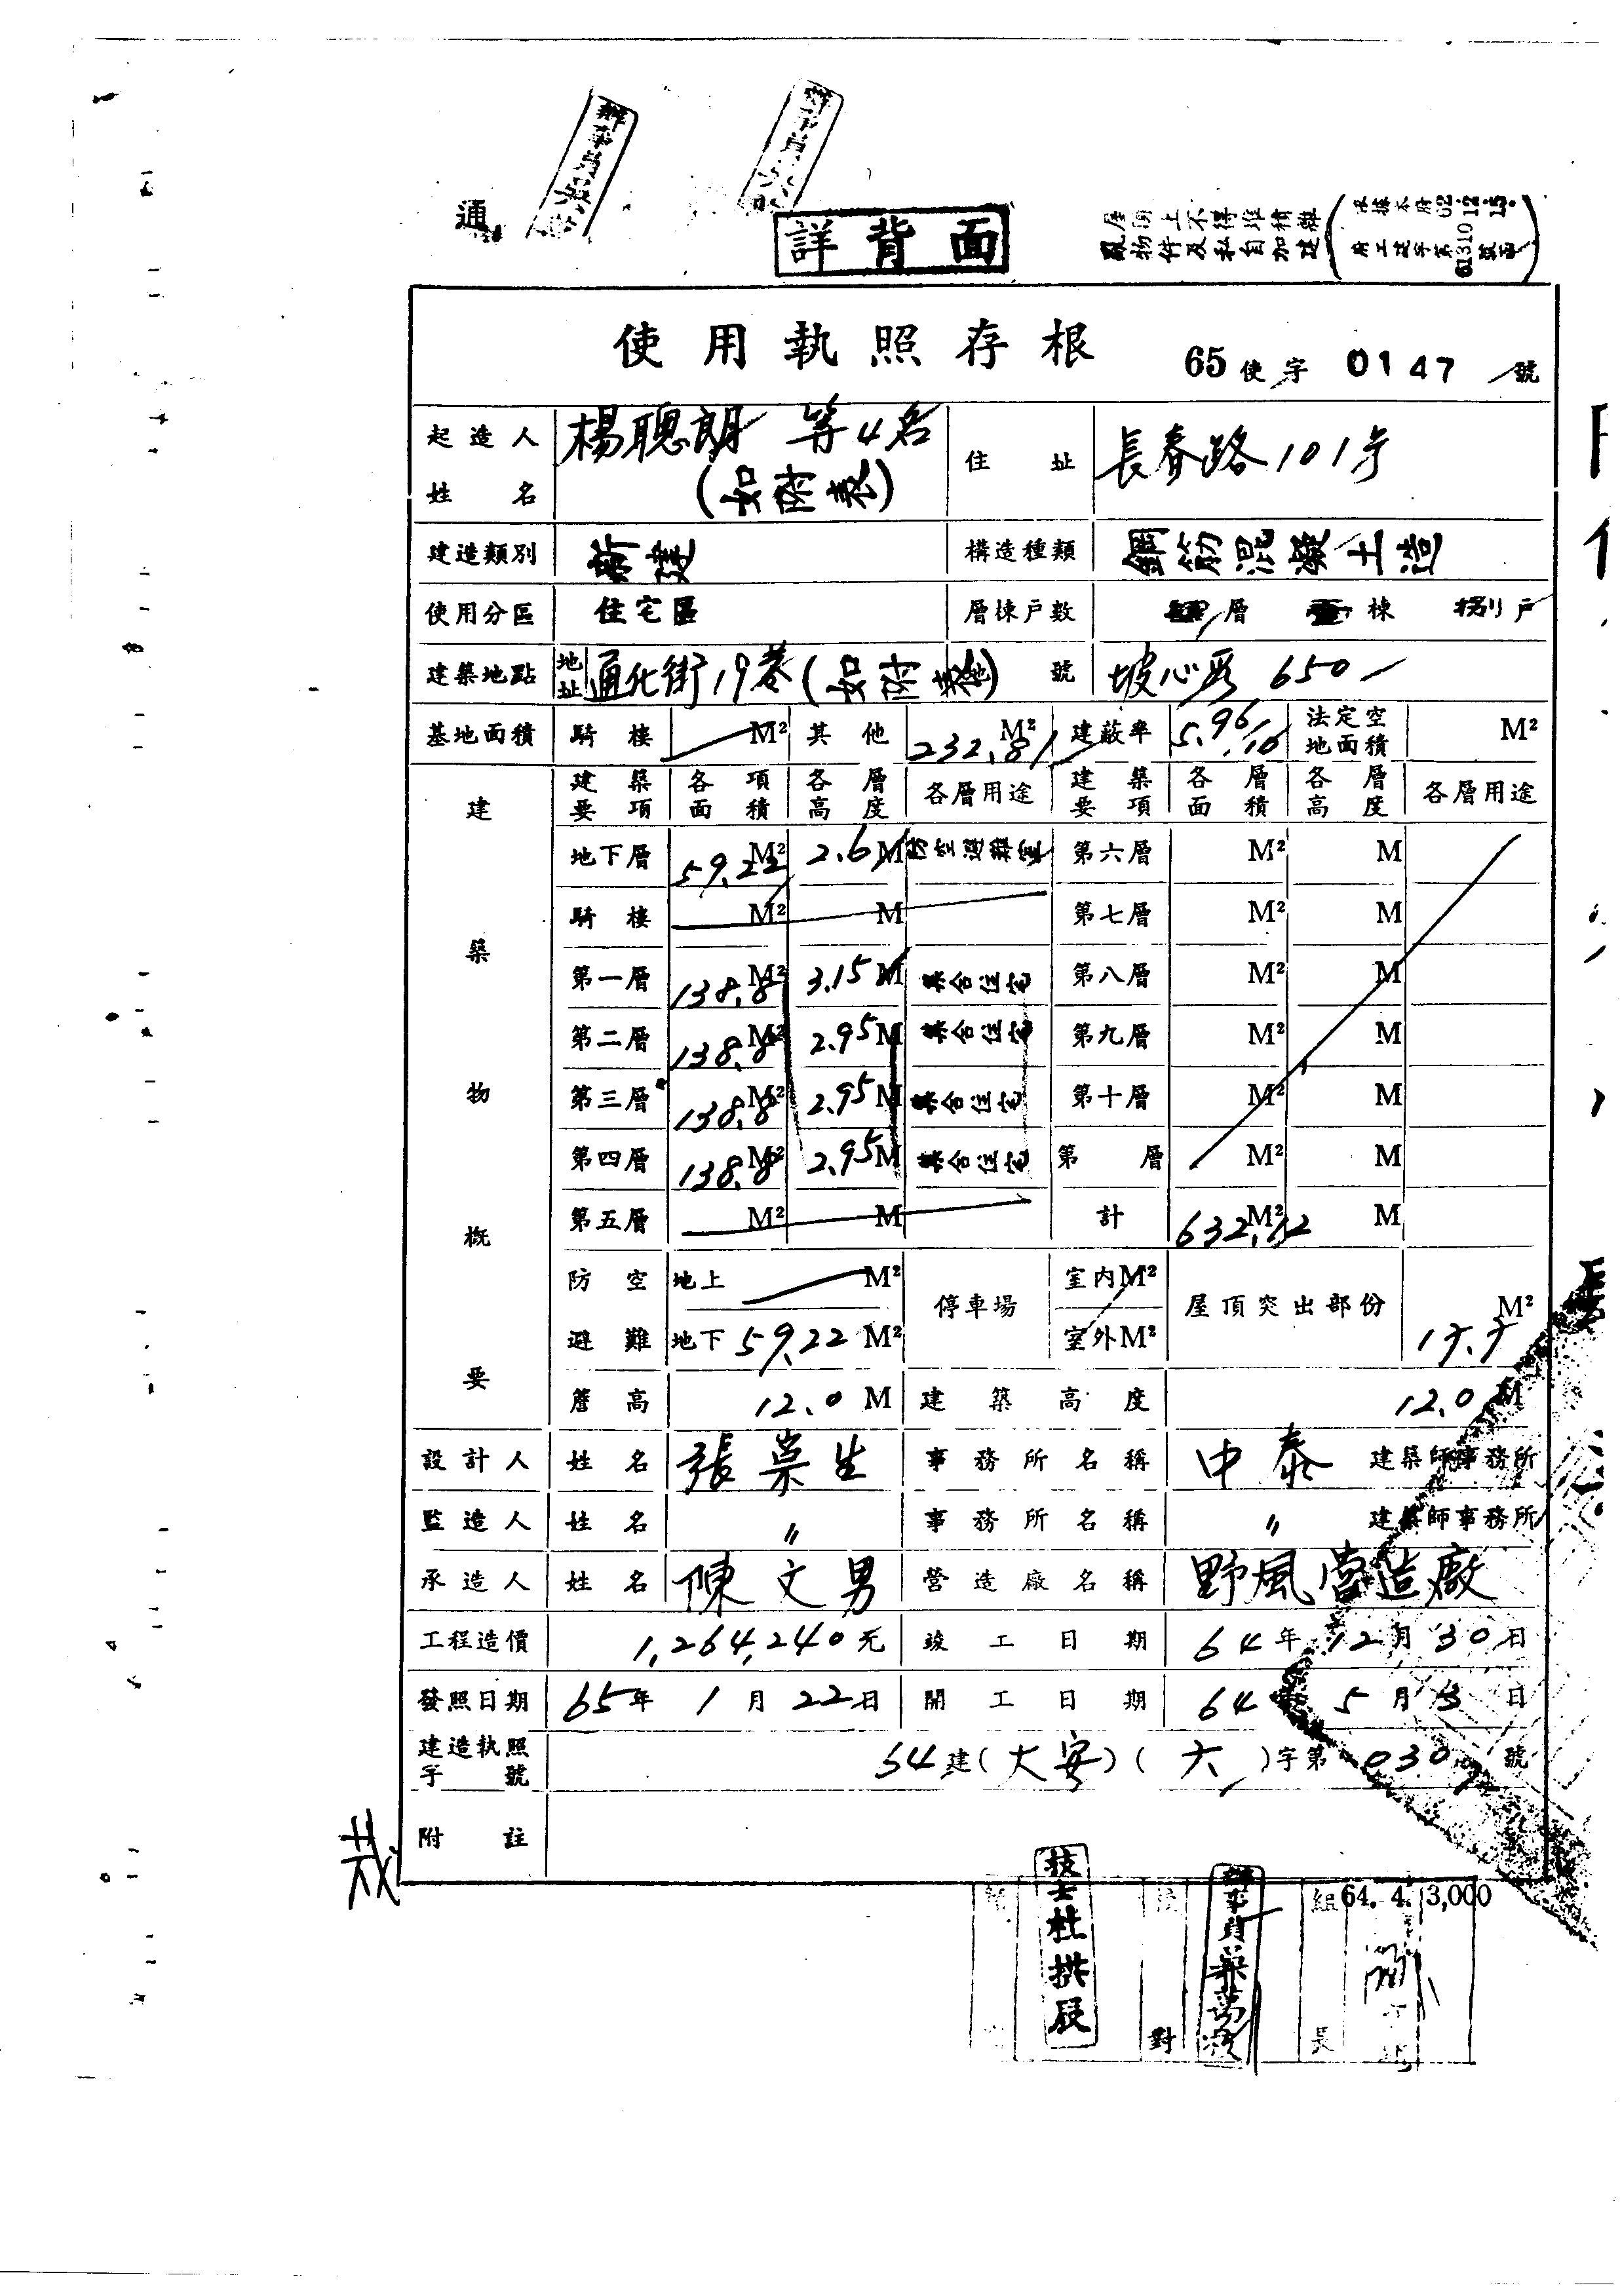 通
詳背面
屋頂上不得堆積雜
物件及私自加建
使用執照存根 65使字 0147 號
起造人姓名 楊聰朗 等4名 (如附表) 住址 長春路101号
建造類別 新建 構造種類 鋼筋混凝土造
使用分區 住宅區 層棟戶數 肆層 壹棟 捌戶
建築地點 地址 通化街19巷(如附表) 地號 坡心段 650
基地面積 騎樓 M² 其他 232.81 M² 建蔽率 5.96/10 法定空地面積 M²
建築物概要
建築要項 各項面積 各層高度 各層用途 建築要項 各層面積 各層高度 各層用途
地下層 59.22 M² 2.6 M 防空避難室 第六層 M² M
騎樓 M² M 第七層 M² M
第一層 138.8 M² 3.15 M 集合住宅 第八層 M² M
第二層 138.8 M² 2.95 M 集合住宅 第九層 M² M
第三層 138.8 M² 2.95 M 集合住宅 第十層 M² M
第四層 138.8 M² 2.95 M 集合住宅 第 層 M² M
第五層 M² M 計 632.12 M² M
防空避難 地上 M² 停車場 室內M² 屋頂突出部份 M²
地下 59.22 M² 室外M²
簷高 12.0 M 建築高度 12.0 M
設計人 姓名 張 生 事務所名稱 中泰 建築師事務所
監造人 姓名 〃 事務所名稱 〃 建築師事務所
承造人 姓名 陳文男 營造廠名稱 野風營造廠
工程造價 1,264,240元 竣工日期 64年12月30日
發照日期 65年1月22日 開工日期 64年5月3日
建造執照字號 64建(大安)(六)字第030 號
附註
64. 4. 3,000
技士杜拱辰
辦事員
對
組
長